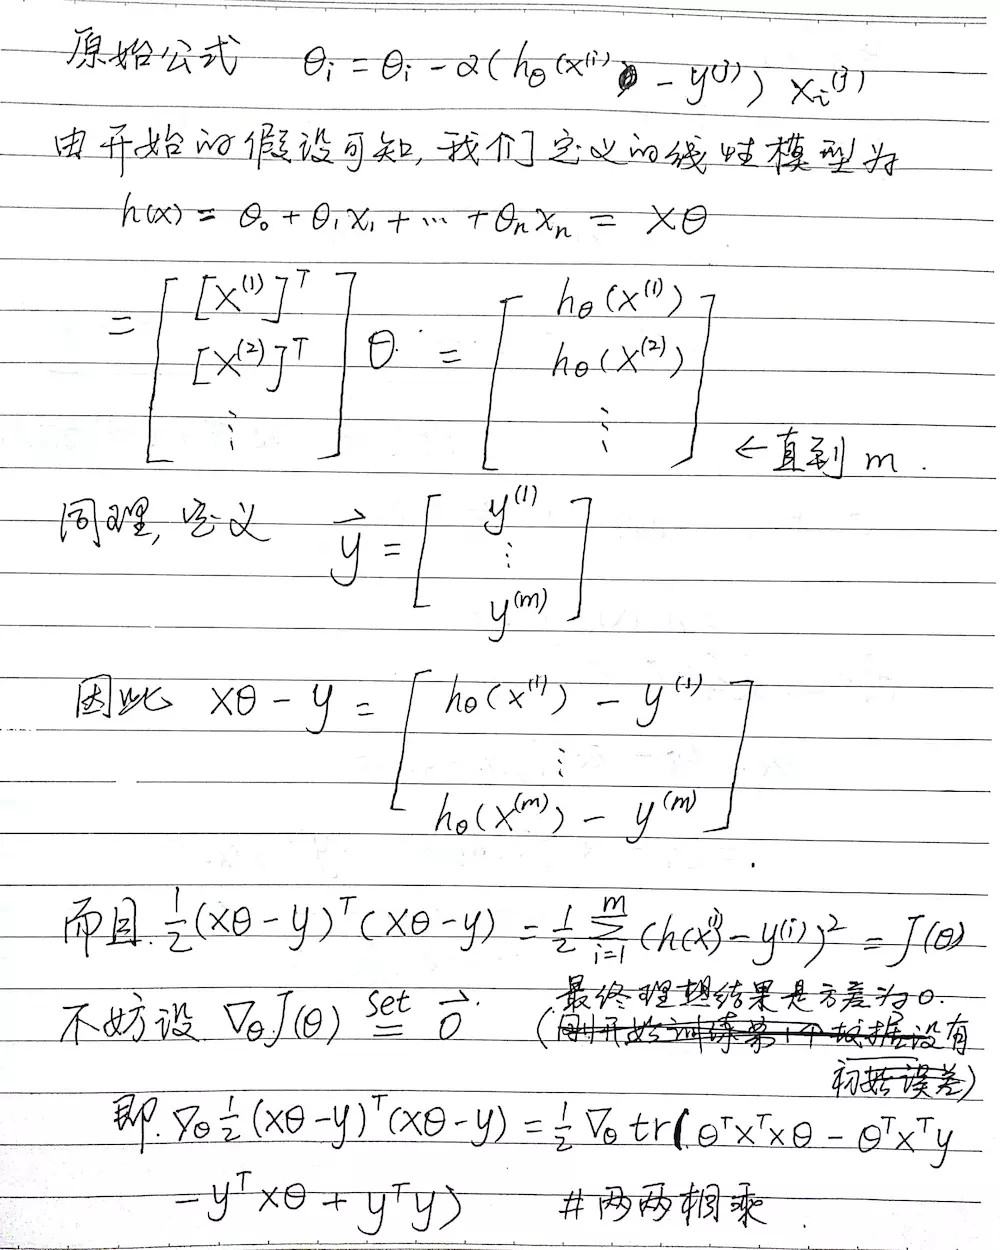 原始公式 θi = θi - α(hθ(x⁽ⁱ⁾) - y⁽ʲ⁾) xi⁽ʲ⁾
由开始的假设可知, 我们定义的线性模型为
h(x) = θ₀ + θ₁x₁ + ⋯ + θnxn = Xθ
= [ [x⁽¹⁾]ᵀ [x⁽²⁾]ᵀ ⋮ ] θ = [ hθ(x⁽¹⁾) hθ(x⁽²⁾) ⋮ ] ←直到 m.
同理, 定义 y⃗ = [ y⁽¹⁾ ⋮ y⁽ᵐ⁾ ]
因此 Xθ - y = [ hθ(x⁽¹⁾) - y⁽¹⁾ ⋮ hθ(x⁽ᵐ⁾) - y⁽ᵐ⁾ ]
而且. ½(Xθ - y)ᵀ(Xθ - y) = ½ ∑ᵢ₌₁ᵐ (h(x⁽ⁱ⁾) - y⁽ⁱ⁾)² = J(θ)
最终理想结果是方差为0.
不妨设 ∇θJ(θ) set= 0⃗ (刚开始训练第1个数据没有
初始误差)
即. ∇θ ½(Xθ-y)ᵀ(Xθ-y) = ½ ∇θ tr(θᵀXᵀXθ - θᵀXᵀy
- yᵀXθ + yᵀy) #两两相乘